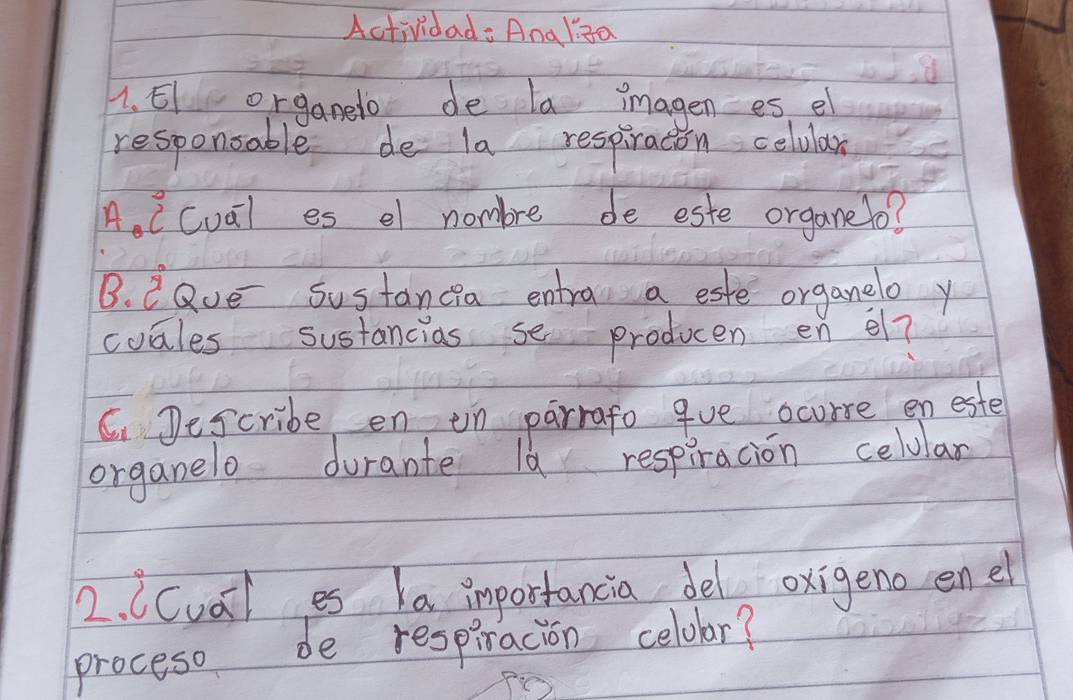 Actividad: Analiza
1. El organelo de la imagen es el
responsable de la respiración celular
A. ¿Cuál es el nombre de este organelo?
B. ¿Qué sustancia entra a este organelo y
cuáles sustancias se producen en él?
C. Describe en un párrafo que ocurre en este
organelo durante la respiración celular
2. ¿Cuál es la importancia del oxígeno en el
proceso de respiración celular?